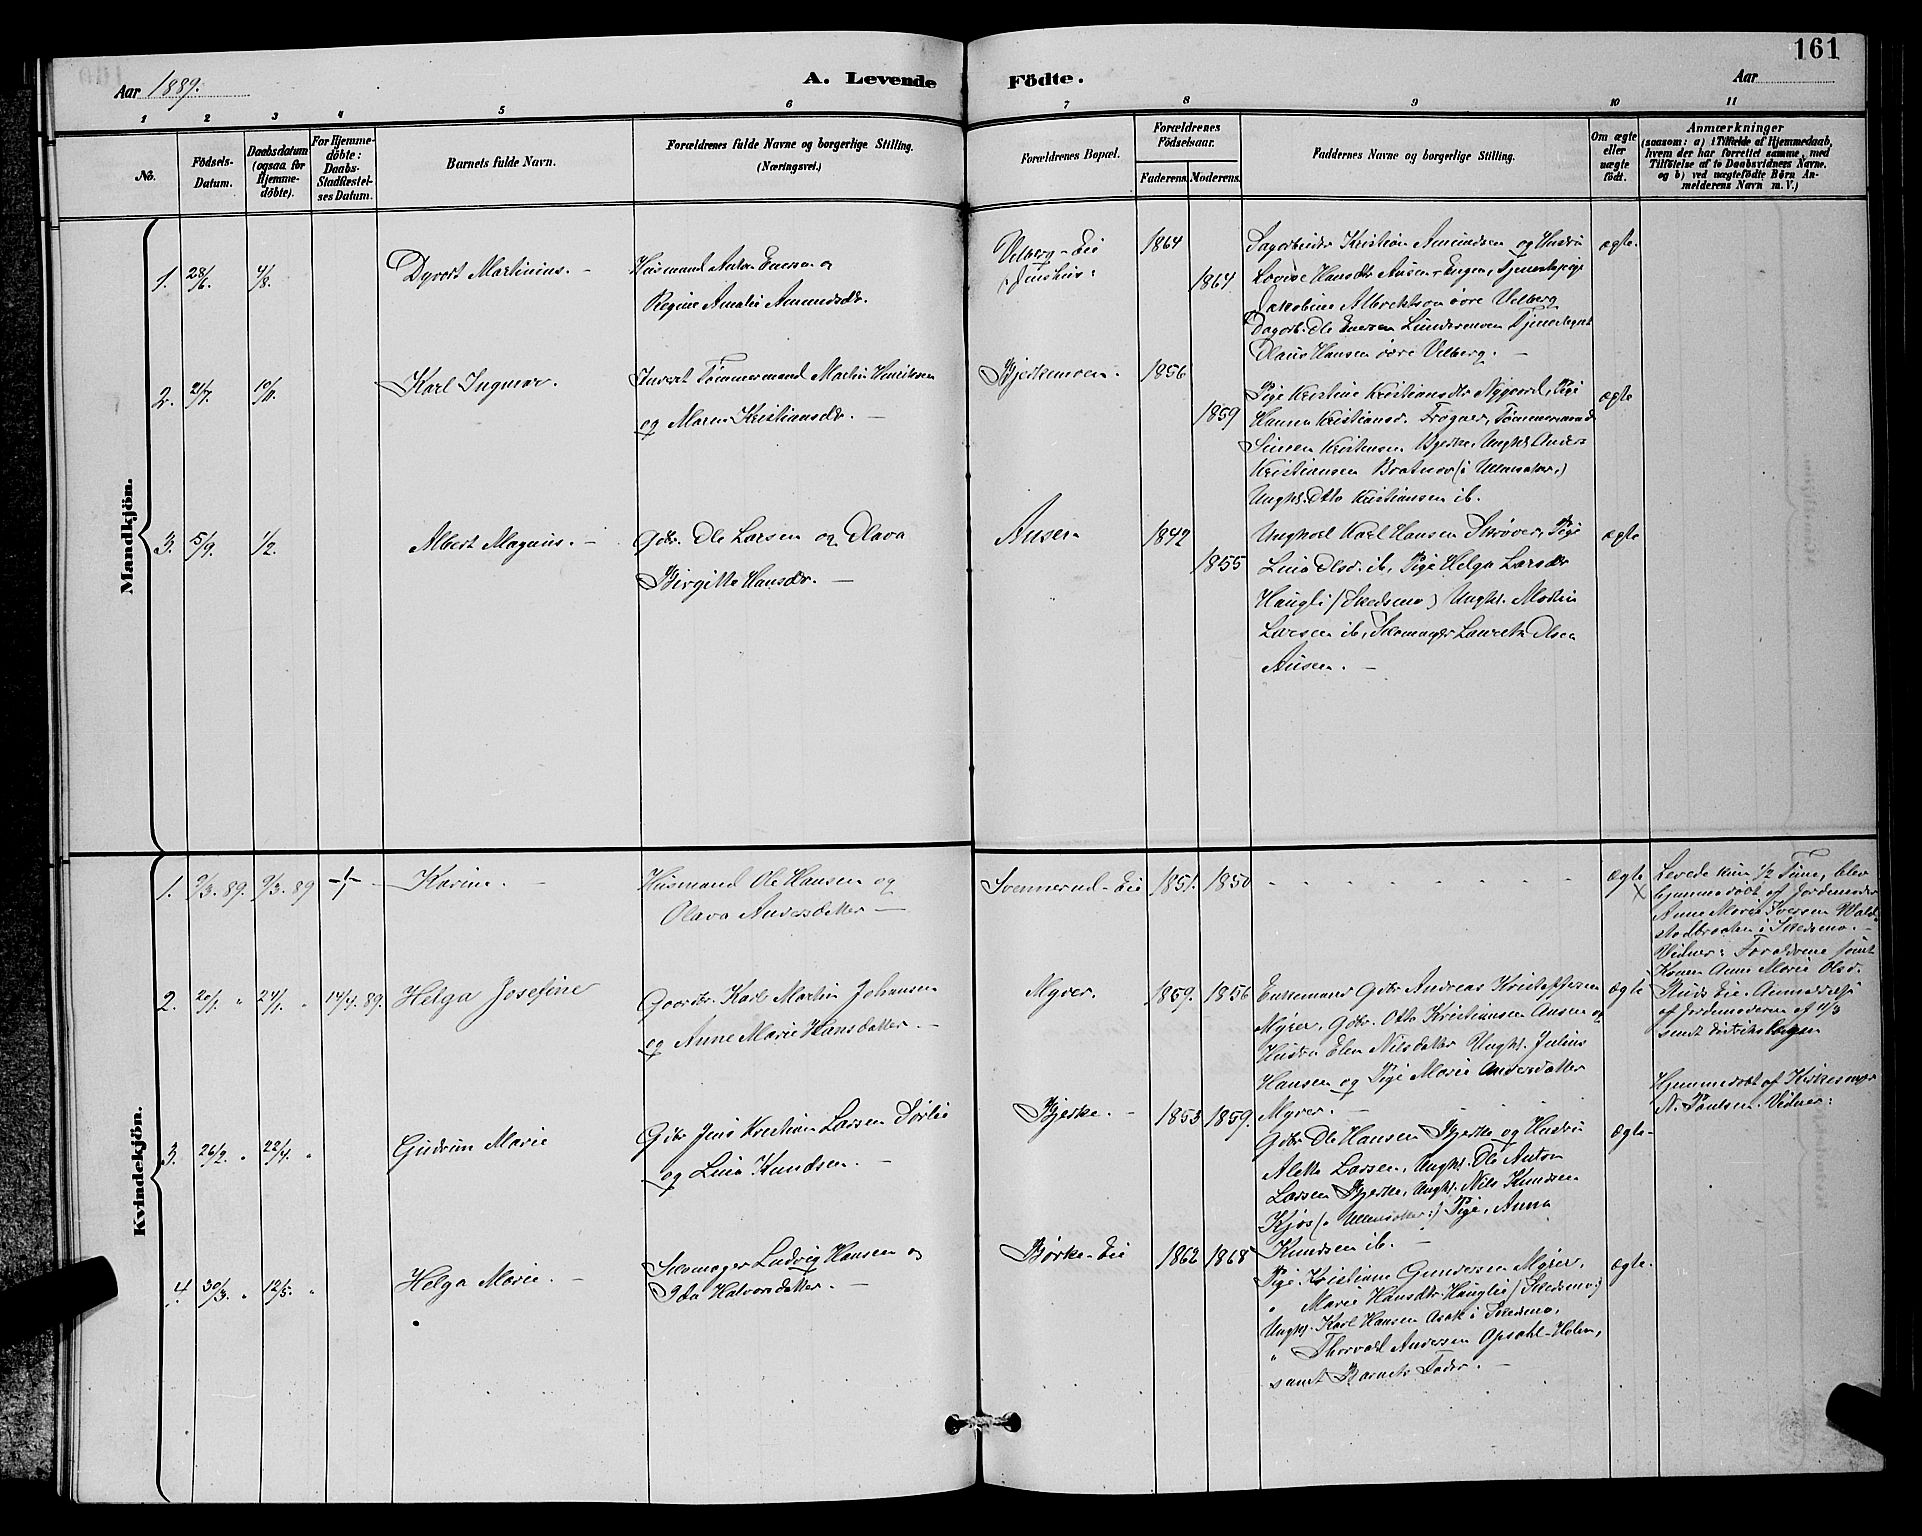 161
Aar 1889. A. Levende Födte. Aar
1 2 3 4 5 6 7 8 9 10 11
No.
Födsels-
Datum.
Daabsdatum
(ogsaa for
Hjemme-
döbte).
For Hjemme-
döbte:
Daabs-
Stadfæstel-
ses Datum.
Barnets fulde Navn.
Forældrenes fulde Navne og borgerlige Stilling.
(Næringsvei.)
Forældrenes Bopæl.
Forældrenes
Födselsaar.
Faderens. Moderens.
Faddernes Navne og borgerlige Stilling.
Om ægte
eller
uægte
födt.
Anmærkninger
(saasom: a) i Tilfælde af Hjemmedaab,
hvem der har forrettet samme, med
Tilföielse af to Daabsvidners Navne,
og b) ved uægtefödte Börn An-
melderens Navn m. V.)
Mandkjön.
1. 28/6. 4/8. Dyvert Martinius. -
Husmand Anton Enersen og
Regine Amalie Amundsdr.
Velberg-Eie
1864
1864
Dagarbeider Kristian Amundsen og Hustru
Lovise Hansdtr Ausen-Engen, Tjenestepige
Jakobine Albrektsen övre Velberg
Dagarb. Ole Enersen Lundermoen Tjenestegut
Olaus Hansen övre Velberg. -
ægte.
2. 21/7. Karl Ingvar.
Inderst Tömmermand Martin Henriksen
og Maren Kristiansdr. -
Bjerkemoen.
1856
1859
Pige Kristine Kristiansdtr Nygaard, Pige
Hanna Kristiansd. Frogner, Tömmermand
Simen Kristensen Bjerke, Ungkl Anders
Kristiansen Bratner (i Ullensaker,)
Ungkl. Otto Kristiansen ib.
ægte
3. 5/9. 1/2. Albert Magnus. -
Gdbr. Ole Larsen og Olava
Birgitte Hansdr. -
Ausen
1842
1855
Ungkarl Karl Hansen Skrøver, Pige
Lina Olsd. ib, Pige Helga Larsdtr
Haugli (Skedsmo) Ungkl. Martin
Larsen ib, Skomager Lauritz Olsen
Ausen. -
ægte
Kvindekjön.
1. 9/3. 89. 9/3. 89 -,- Karine. -
Husmand Ole Hansen og
Olava Andersdatter -
Svennerud-Eie 1851. 1850
ægte
Levede kun 1/2 Time, blev
hjemmedöbt af Jordemoder
Anne Marie Iversen Vald-
stadbraaten i Skedsmo. -
Vidner: Forældrene samt
Konen Anne Marie Olsd.
Ruds Eie. Anmeldelse
af Jordemoderen af 11/3
samt distriktslægen
2. 20/1. " 24/1. " 14/4. 89. Helga Josefine
Gaardbr. Karl Martin Johansen
og Anne Marie Hansdatter. -
Myrer. 1859. 1856
Enkemand Gdbr Andreas Kristoffersen
Myrer, Gdbr. Otto Kristiansen Ausen og
Hustru Elen Nilsdatter Ungkl. Julius
Hansen og Pige Marie Andersdatter
Myrer. -
ægte
Hjemmedöbt af Kirkesanger
N. Paulsen. Vidner:
3. 26/2. " 22/4. " Gudrun Marie
Gdbr Jens Kristian Larsen Sørlie
og Lina Knudsen. -
Bjerke. - 1853 1859.
Gdbr Ole Hansen Bjerke og Hustru
Alette Larsen, Ungkl. Ole Anton
Larsen Bjerke, Ungkl. Nils Knudsen
Kjos (i Ullensaker:) Pige, Anna
Knudsen ib. -
ægte-
4. 30/3. " 12/5. " Helga Marie. -
Skomager Ludvig Hansen og
Ida Halvorsdatter. -
Børke-Eie 1862 1868
Pige Kristiane Gundersen Myrer,
" Marie Hansdtr Hauglie (Skedsmo:)
Ungkl. Karl Hansen Asak i Skedsmo,
" Thorvald Andersen Opsahl-Holm,
samt Barnets Fader. -
ægte.